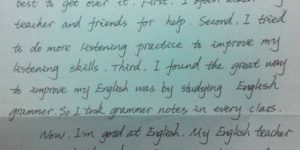 best to get over it. First. I often asked my
teacher and friends for help. Second. I tried
to do more listening practice to improve my
listening skills. Third, I found the great way
to improve my English was by studying English
grammer. So I took grammer notes in every class.
Now. I'm good at English. My English teacher